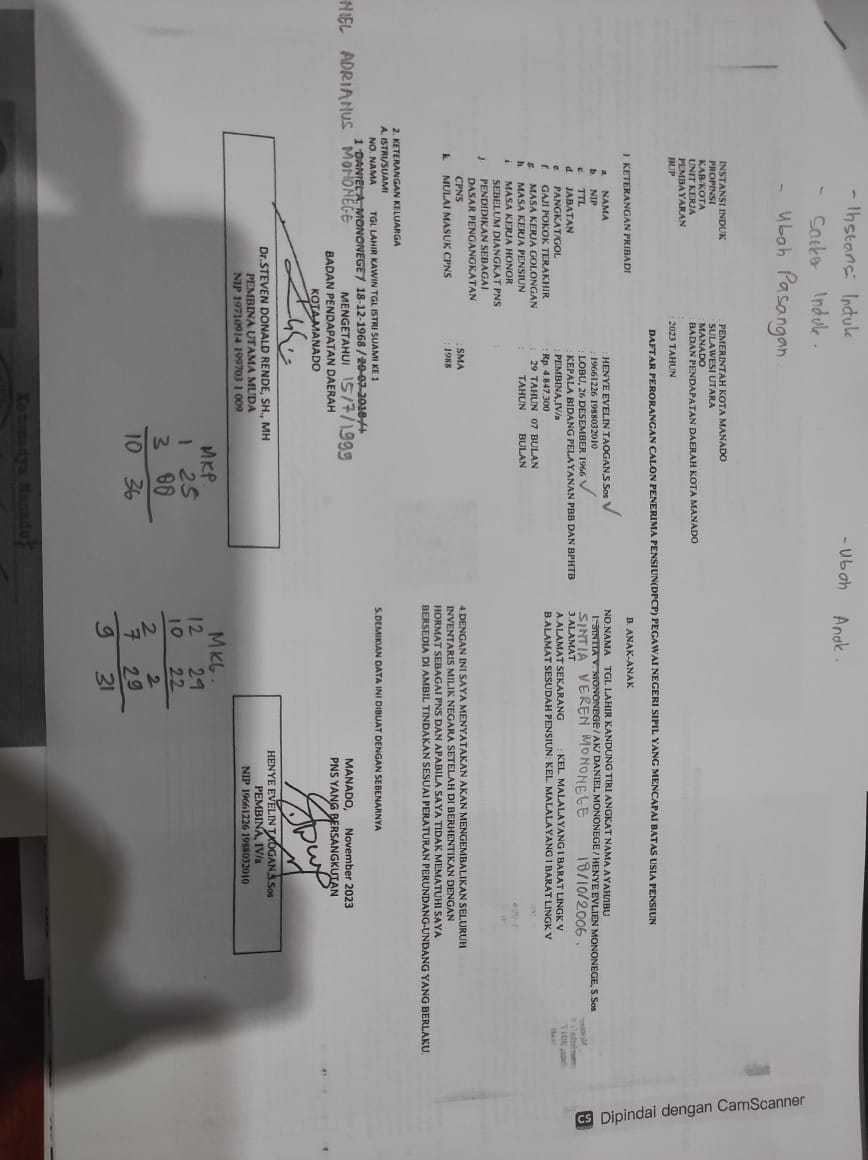 - Instansi Induk
- Satker Induk.
- Ubah Pasangan
- Ubah Anak.
DAFTAR PERORANGAN CALON PENERIMA PENSIUN(DPCP) PEGAWAI NEGERI SIPIL YANG MENCAPAI BATAS USIA PENSIUN
INSTANSI INDUK : PEMERINTAH KOTA MANADO
PROPINSI : SULAWESI UTARA
KAB/KOTA MANADO
UNIT KERJA BADAN PENDAPATAN DAERAH KOTA MANADO
PEMBAYARAN
BUP : 2023 TAHUN
1 KETERANGAN PRIBADI
a. NAMA : HENYE EVELIN TAOGAN,S.Sos
b. NIP : 19661226 1988032010
c. TTL : LOBU, 26 DESEMBER 1966
d. JABATAN : KEPALA BIDANG PELAYANAN PBB DAN BPHTB
e. PANGKAT/GOL PEMBINA,IV/a
f. GAJI POKOK TERAKHIR : Rp 4.847.300
g. MASA KERJA GOLONGAN : 29 TAHUN 07 BULAN
h. MASA KERJA PENSIUN : TAHUN BULAN
i. MASA KERJA HONOR
SEBELUM DIANGKAT PNS :
j. PENDIDIKAN SEBAGAI
DASAR PENGANGKATAN
CPNS : SMA
k. MULAI MASUK CPNS : 1988
2. KETERANGAN KELUARGA
A. ISTRI/SUAMI
NO. NAMA TGL LAHIR KAWIN TGL ISTRI SUAMI KE 1
1 DANIEL A. MONONEGE / 18-12-1968 / 20-07-2018 / 1
NIEL ADRIANUS MONONEGE 15/7/1999
B. ANAK-ANAK
NO.NAMA TGL LAHIR KANDUNG TIRI ANGKAT NAMA AYAH/IBU
1. SINTIA V. MONONEGE / AK/ DANIEL MONONEGE / HENYE EVLIEN MONONEGE, S.Sos
SINTIA VEREN MONONEGE 18/10/2006.
3.ALAMAT
A.ALAMAT SEKARANG : KEL. MALALAYANG I BARAT LINGK V
B.ALAMAT SESUDAH PENSIUN: KEL. MALALAYANG I BARAT LINGK V
4.DENGAN INI SAYA MENYATAKAN AKAN MENGEMBALIKAN SELURUH
INVENTARIS MILIK NEGARA SETELAH DI BERHENTIKAN DENGAN
HORMAT SEBAGAI PNS DAN APABILA SAYA TIDAK MEMATUHI SAYA
BERSEDIA DI AMBIL TINDAKAN SESUAI PERATURAN PERUNDANG-UNDANG YANG BERLAKU.
5.DEMIKIAN DATA INI DIBUAT DENGAN SEBENARNYA
MENGETAHUI
BADAN PENDAPATAN DAERAH
KOTA MANADO
Dr.STEVEN DONALD RENDE, SH., MH
PEMBINA UTAMA MUDA
NIP 19710914 199703 1 009
MANADO, November 2023
PNS YANG BERSANGKUTAN
HENYE EVELIN TAOGAN,S.Sos
PEMBINA, IV/a
NIP 19661226 1988032010
MKP.
1 25
3 88
10 36
MKG.
12 24
10 22
2 2
7 29
9 31
Dipindai dengan CamScanner
CS